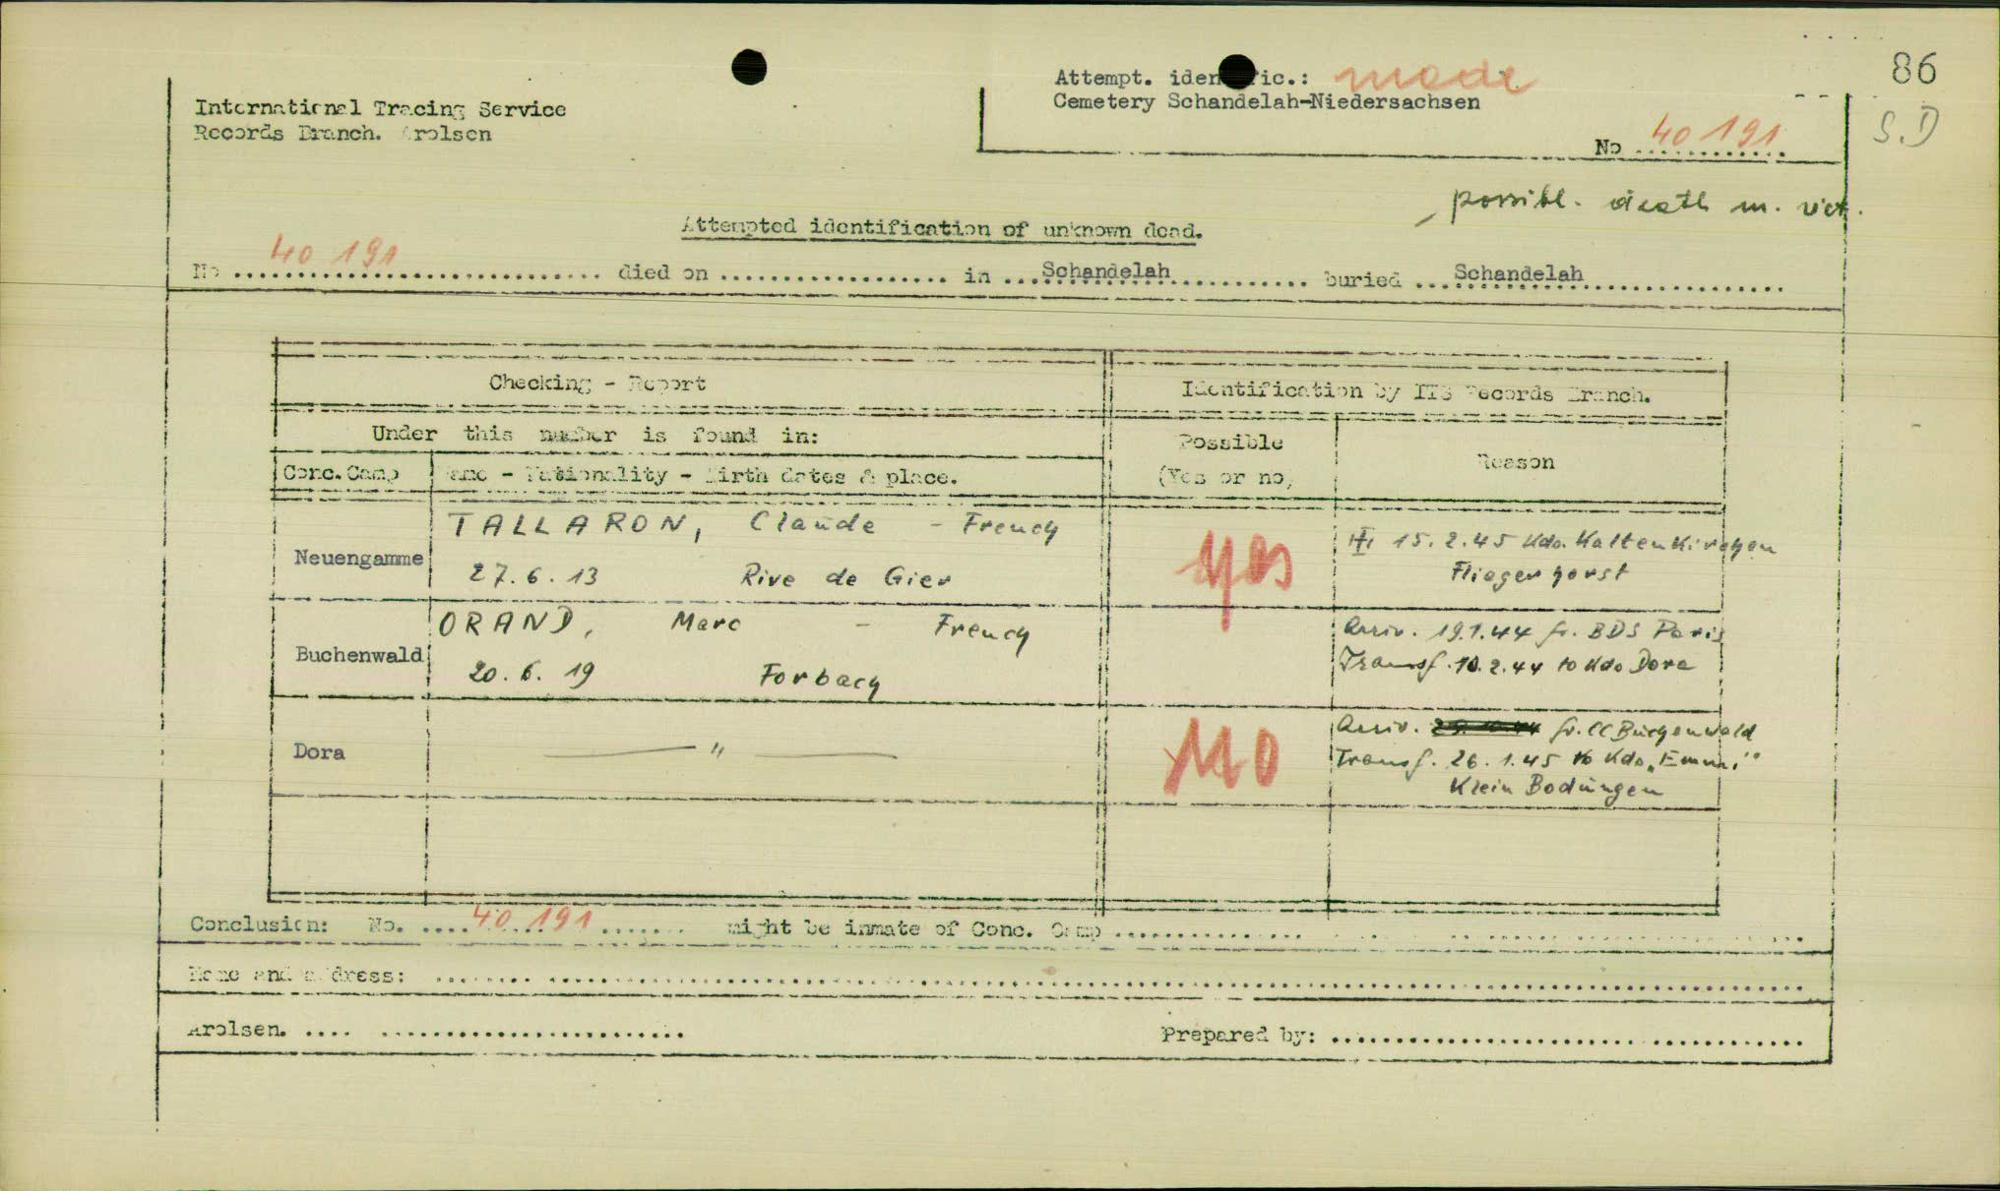 86
S.D
Attempt. identific.: made
Cemetery Schandelah-Niedersachsen
No 40 191
International Tracing Service
Records Branch. Arolsen
possibl. death m. vict.
Attempted identification of unknown dead.
No 40 191 died on in Schandelah buried Schandelah
Checking - Report
Identification by ITS Records Branch.
Under this number is found in:
Possible
(Yes or no)
Reason
Conc.Camp Name - Nationality - Birth dates & place.
Neuengamme
TALLARON, Claude - French
27.6.13 Rive de Gier
yes
15.2.45 Kdo. Kaltenkirchen
Fliegerhorst
Buchenwald
ORAND, Marc - French
20.6.19 Forbach
Arriv. 19.1.44 fr. BDS Paris
Transf. 10.2.44 to Kdo Dora
Dora
"
no
Arriv. fr. CC Buchenwald
Transf. 26.1.45 to Kdo „Emmi"
Klein Bodungen
Conclusion: No. 40 191 might be inmate of Conc. Camp
Name and address:
Arolsen.
Prepared by: